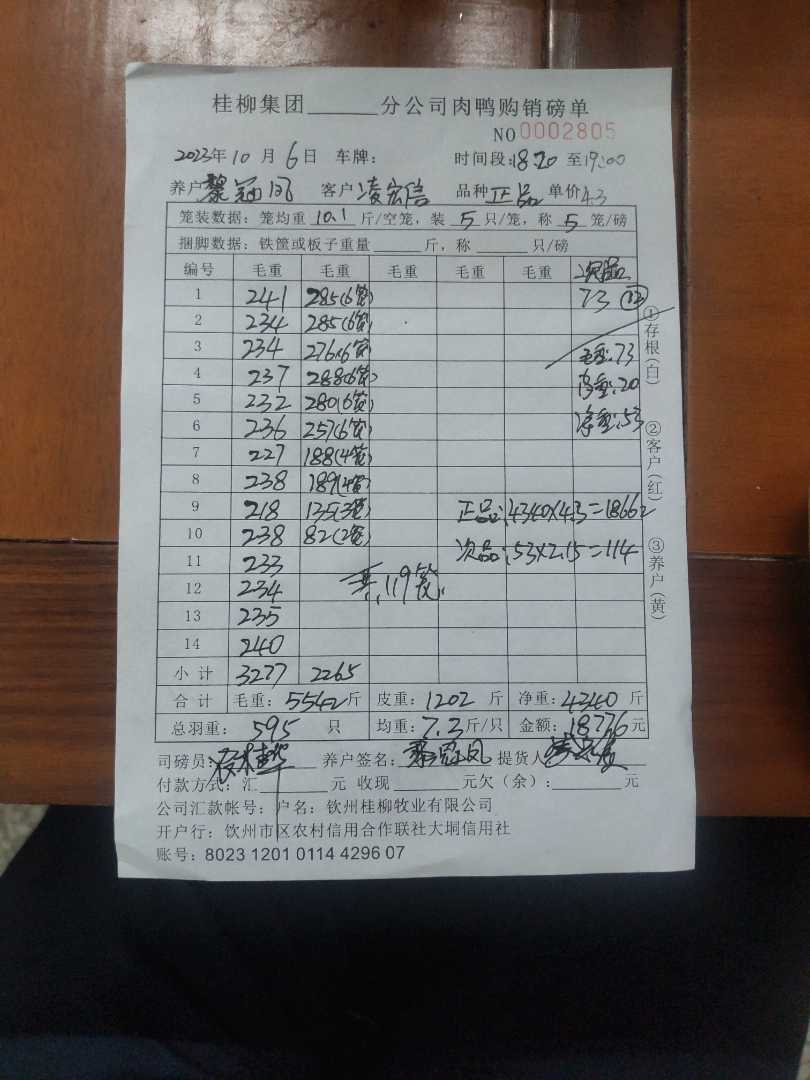 桂柳集团______分公司肉鸭购销磅单
NO 0002805
2023年10月6日 车牌: 时间段:18:20至19:00
养户 黎冠凤 客户 凌宏信 品种 正品 单价4.3
笼装数据: 笼均重 10.1 斤/空笼, 装 5 只/笼, 称 5 笼/磅
捆脚数据: 铁筐或板子重量______斤, 称______只/磅
编号 毛重 毛重 毛重 毛重 毛重 次品
1 241 285(6笼) 73 (12)
2 234 285(6笼)
3 234 276(6笼) 毛重:73
4 237 288(6笼) 皮重:20
5 232 280(6笼) 净重:53
6 236 257(6笼)
7 227 188(4笼)
8 238 189(4笼)
9 218 135(3笼) 正品:4340×4.3=18662
10 238 82(2笼) 次品:53×2.15=114
11 233
12 234 共:119笼
13 235
14 240
小计 3277 2265
合计 毛重: 5542斤 皮重: 1202 斤 净重: 4340 斤
总羽重: 595 只 均重: 7.3 斤/只 金额: 18776 元
司磅员: 养户签名: 黎冠凤 提货人
付款方式: 汇______元 收现______元欠(余):______元
公司汇款帐号: 户名: 钦州桂柳牧业有限公司
开户行: 钦州市区农村信用合作联社大垌信用社
账号: 8023 1201 0114 4296 07
①存根(白) ②客户(红) ③养户(黄)